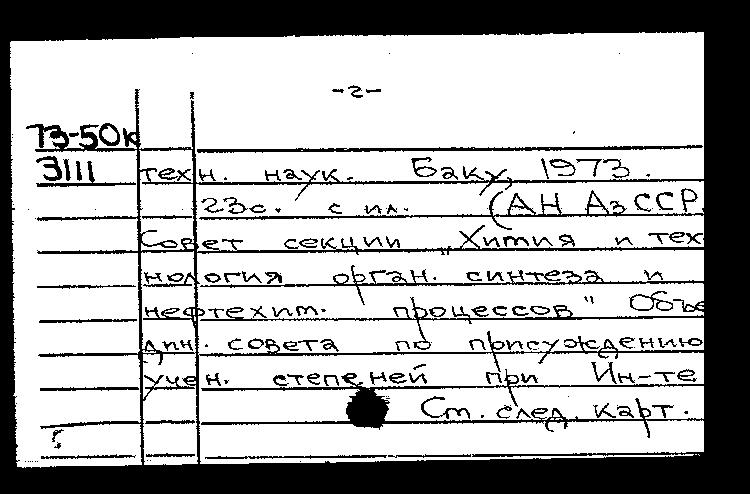 -2-
73-50к
3111 техн. наук. Баку, 1973.
23с. с ил. (АН АзССР.
Совет секции „Химия и тех-
нология орган. синтеза и
нефтехим. процессов" Объе
дин. совета по присуждению
учен. степеней при Ин-те
См. след. карт.